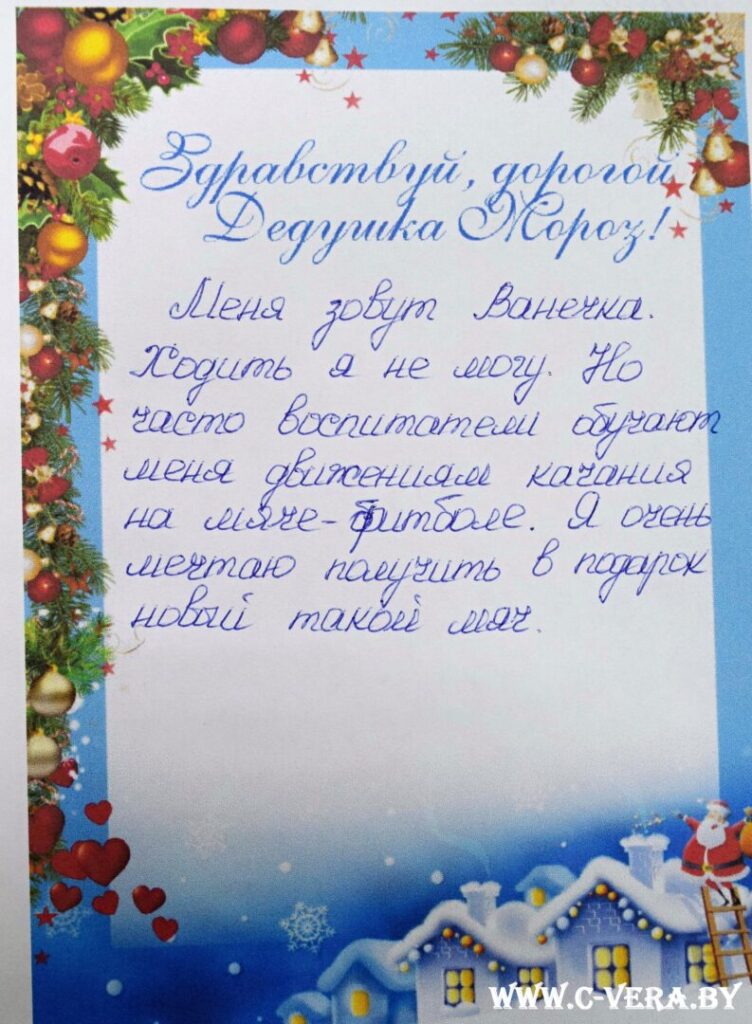 Здравствуй, дорогой
Дедушка Мороз!
Меня зовут Ванечка.
Ходить я не могу. Но
часто воспитатели обучают
меня движениям качания
на мяче-фитболе. Я очень
мечтаю получить в подарок
новый такой мяч.
WWW.C-VERA.BY